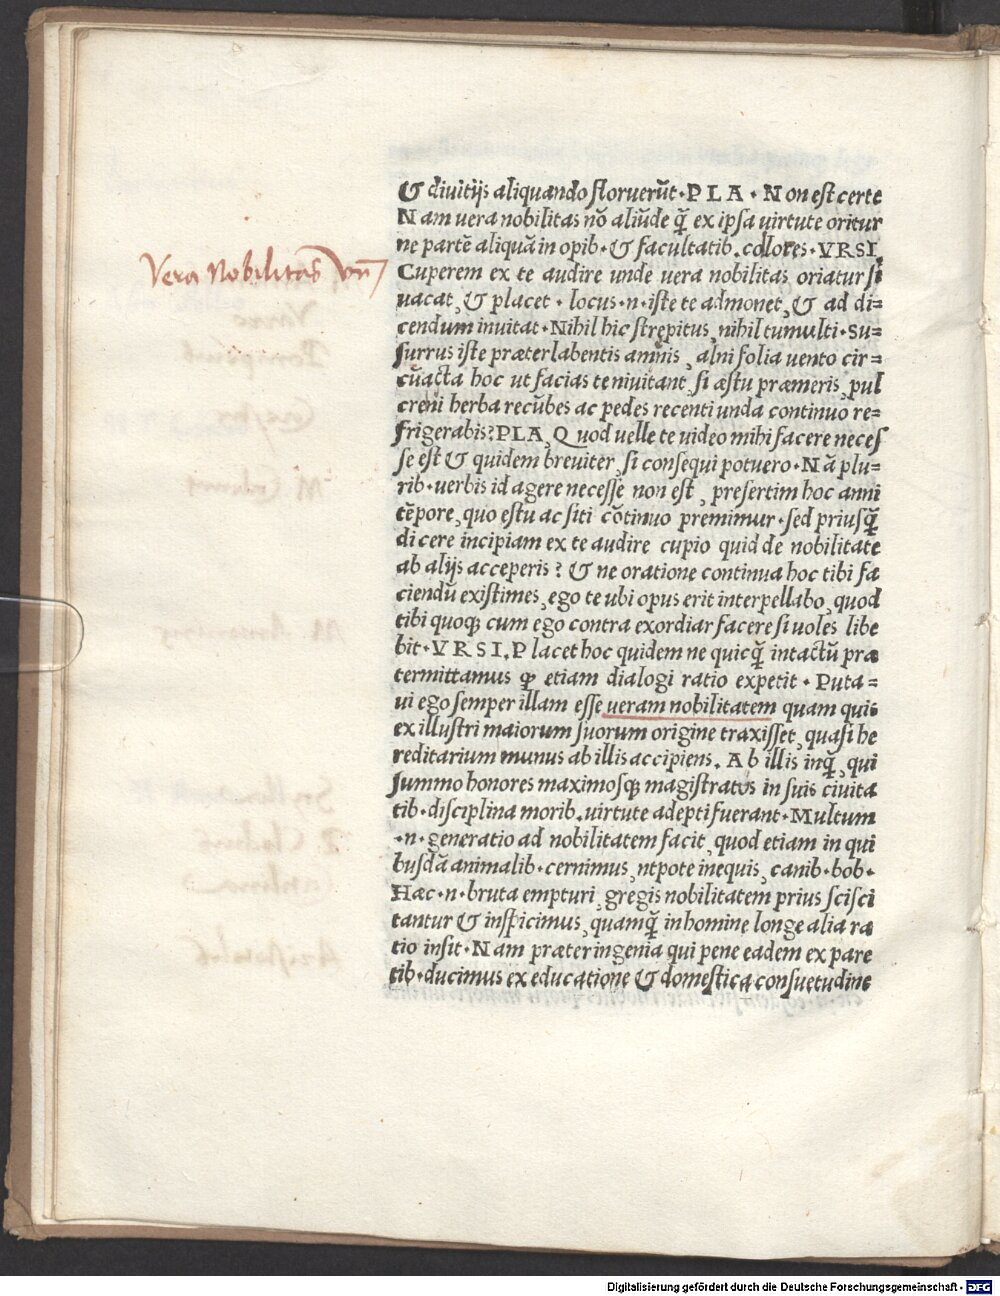 Vera Nobilitas Vñ
& divitijs aliquando floruerūt·PLA·Non est certe
Nam uera nobilitas nō aliūde q̄ ex ipsa uirtute oritur
ne partē aliquā in opib·& facultatib.colores·VRSI.
Cuperem ex te audire unde uera nobilitas oriatur si
uacat, & placet·locus·n·iste te admonet, & ad di=
cendum inuitat·Nihil hic strępitus, nihil tumulti·Su=
surrus iste præterlabentis amnis, alni folia uento cir=
cūacta hoc ut facias te niuitant, si æstu præmeris, pul
creni herba recūbes ac pedes recenti unda continuo re=
frigerabis?PLA, Quod uelle te uideo mihi facere neces
se est & quidem breuiter, si consequi potuero·Nā plu=
rib·uerbis id agere necesse non est, presertim hoc anni
tēpore, quo estu ac siti cōtinuo premimur·sed priusq̄
dicere incipiam ex te audire cupio quid de nobilitate
ab alijs acceperis? & ne oratione continua hoc tibi fa
ciendū existimes, ego te ubi opus erit interpellabo, quod
tibi quoqꝫ cum ego contra exordiar facere si uoles libe
bit·VRSI.Placet hoc quidem ne quicq̄ intactū præ
termittamus ꝙ etiam dialogi ratio expetit·Puta=
ui ego semper illam esse ueram nobilitatem quam quis
ex illustri maiorum suorum origine traxisset, quasi he
reditarium munus ab illis accipiens. Ab illis inq̄, qui
summo honores maximosqꝫ magistratus in suis ciuita
tib·disciplina morib.uirtute adepti fuerant·Multum
·n·generatio ad nobilitatem facit, quod etiam in qui
busdā animalib·cernimus, ntpote inequis, canib·bob·
Hæc·n·bruta empturi, gregis nobilitatem prius scisci
tantur & inspicimus, quamq̄ in homine longe alia ra
tio insit·Nam præter ingenia qui pene eadem ex pare
tib·ducimus ex educatione & domestica consuetudine
Digitalisierung gefördert durch die Deutsche Forschungsgemeinschaft - DFG